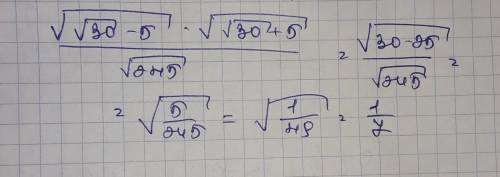 √(√30 - 5) · √(√30 + 5) / √245 = √(30 - 25) / √245 =
= √(5/245) = √(1/49) = 1/7